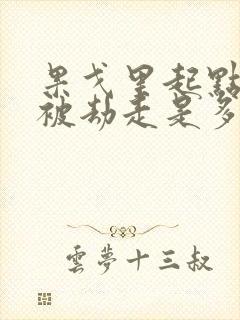 果戈里起點
被劫走是多
雲夢十三叔